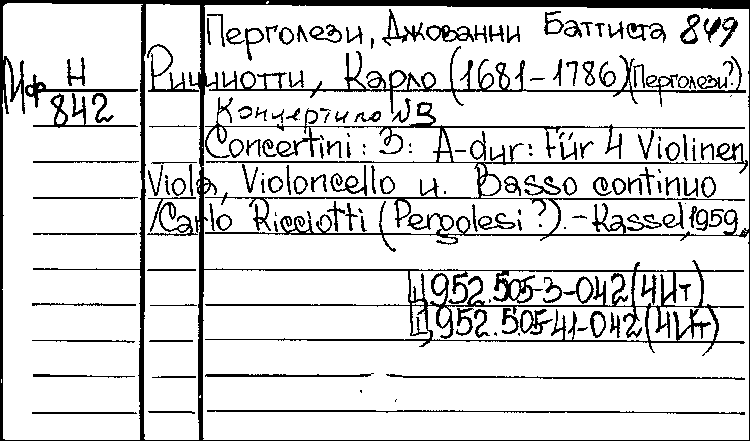 Перголези, Джованни Баттиста 849
Инф Н Риччиотти, Карло (1681-1786)(Перголези?)
842 Концертино №3
Concertini: 3: A-dur: Für 4 Violinen,
Viola, Violoncello u. Basso continuo
/Carlo Ricciotti (Pergolesi?).-Kassel,1959.
952.505-3-042(4Ит)
952.505-41-042(4Ит)